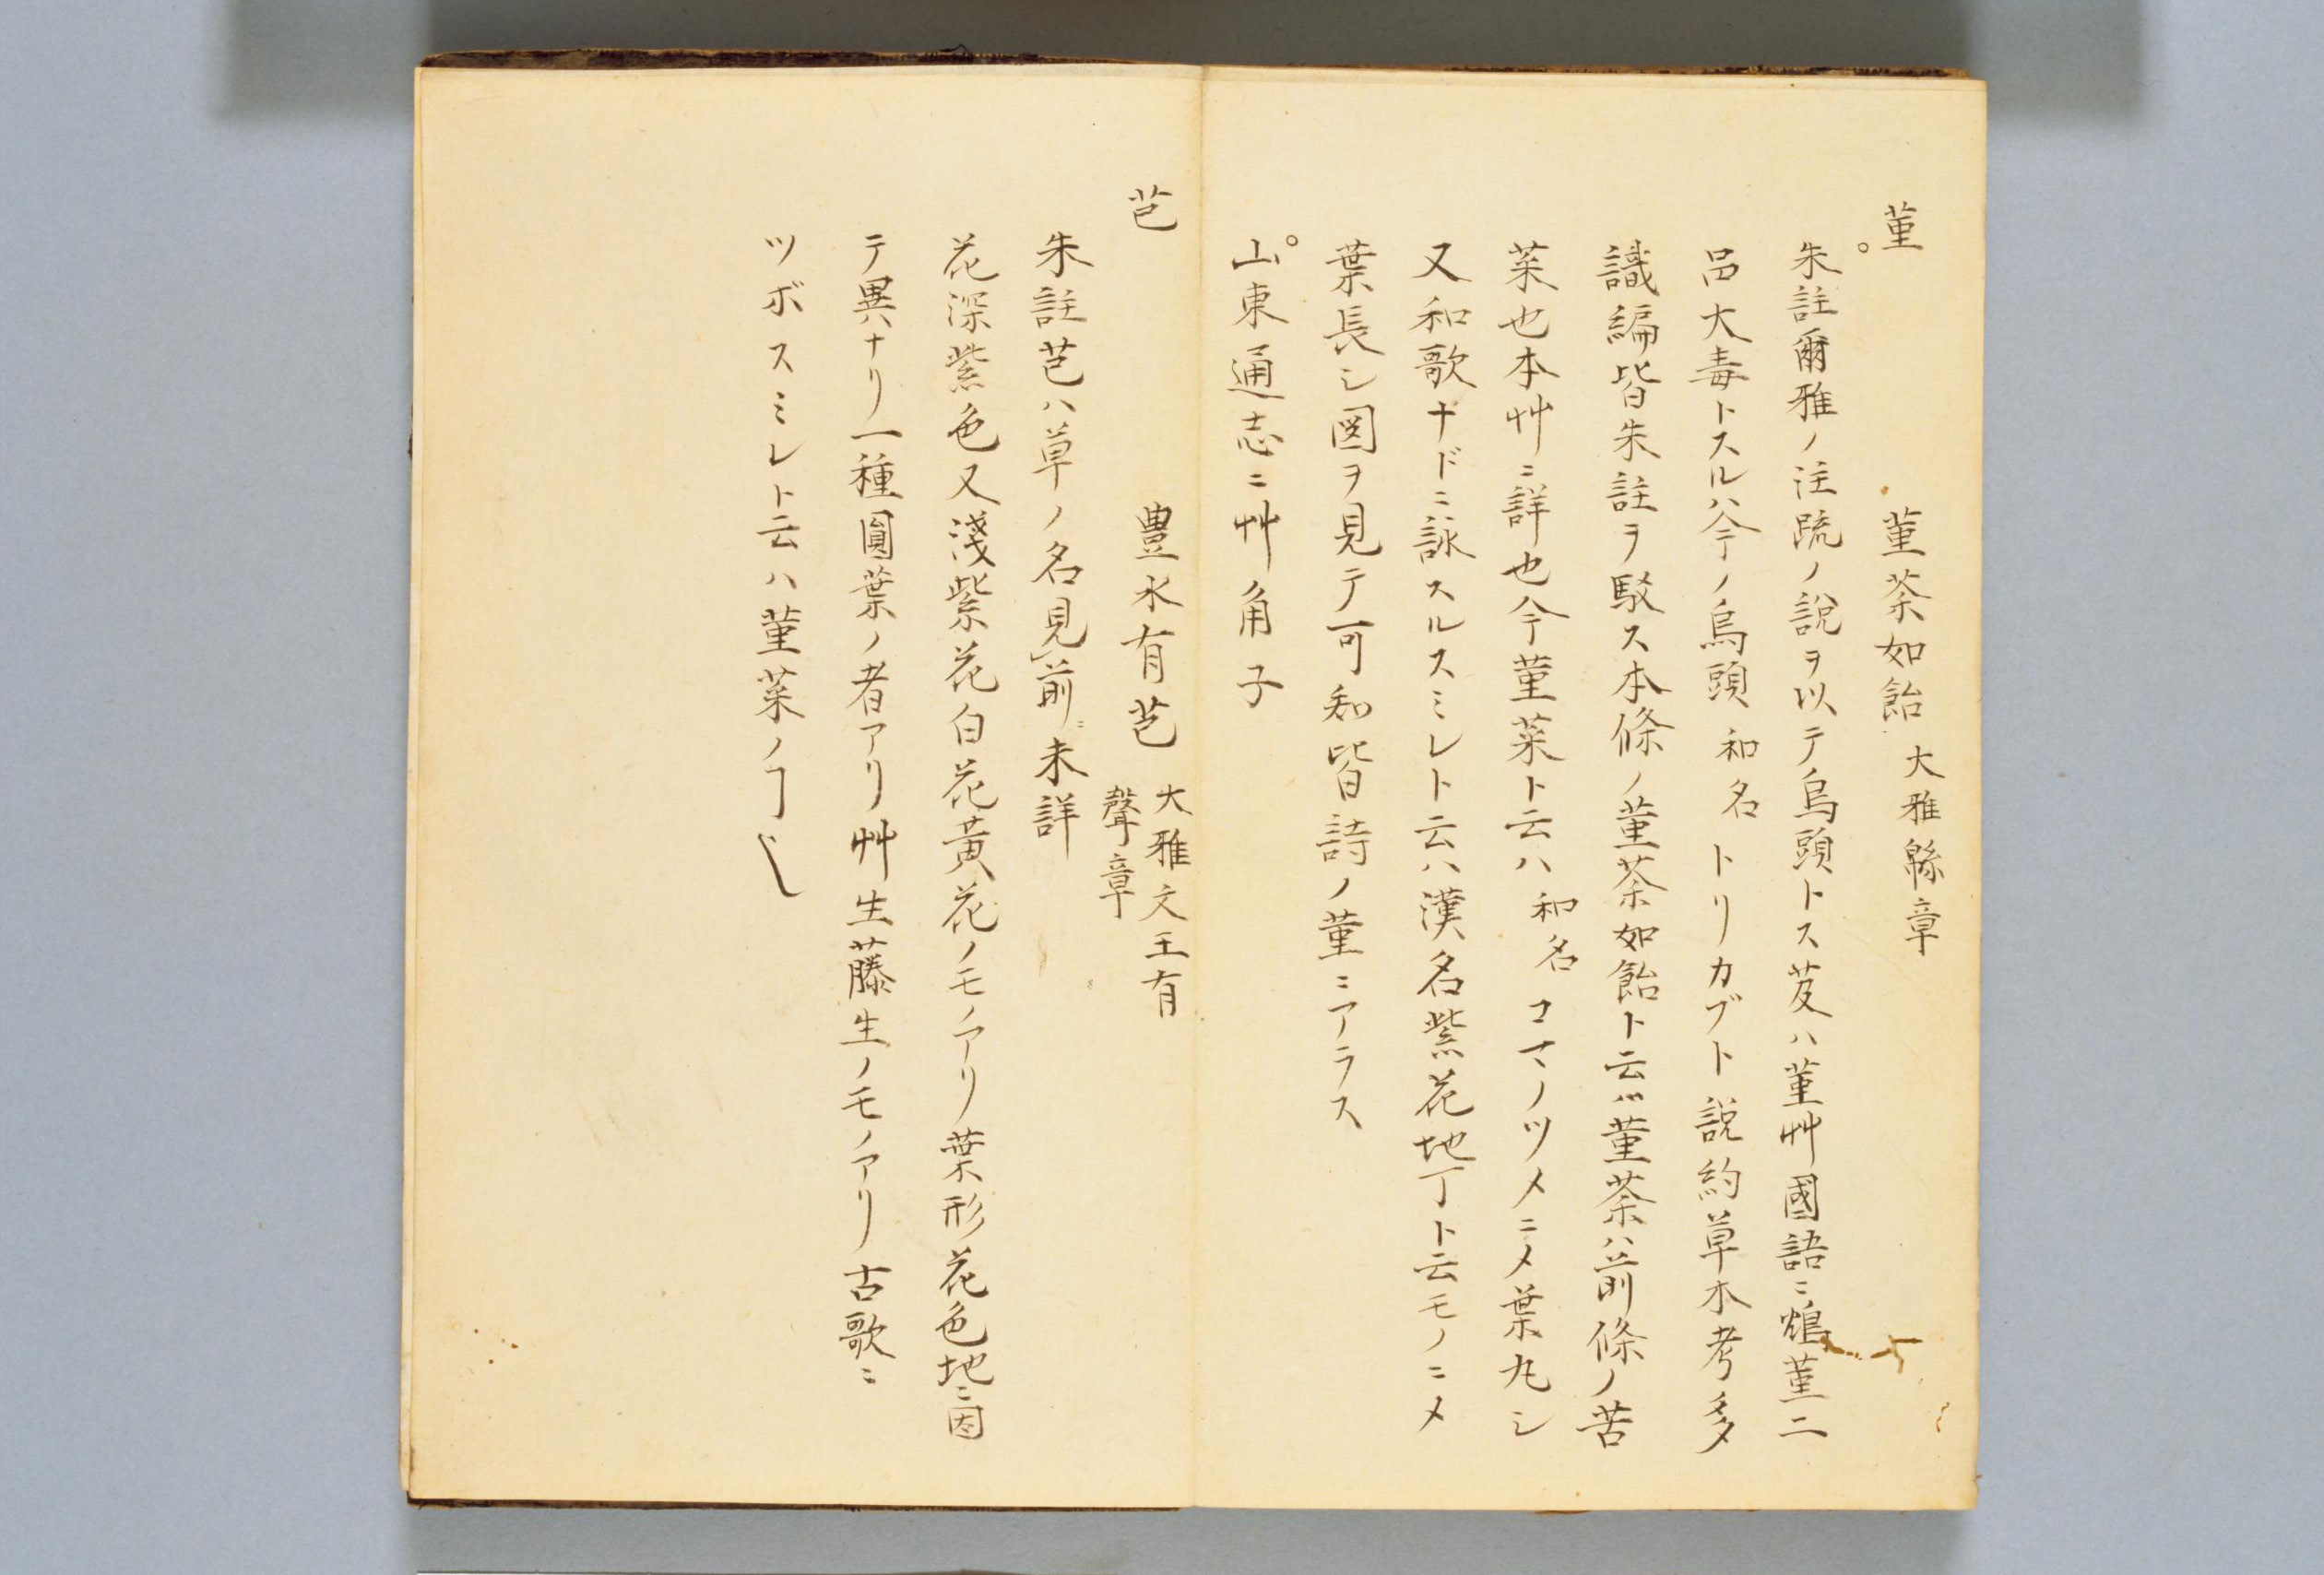 菫
菫荼如飴 大雅緜章
朱註爾雅ノ注䟽ノ說ヲ以テ烏頭トス芨ハ菫艸國語ニ鴆菫二
品大毒トスルハ今ノ烏頭 和名 トリカブト 說約草木考多
識編皆朱註ヲ駁ス本條ノ菫荼如飴ト云ハ菫荼ハ前條ノ苦
菜也本艸ニ詳也今菫菜ト云ハ 和名 コマノツメニメ葉丸シ
又和歌ナドニ詠スルスミレト云ハ漢名紫花地丁ト云モノニメ
葉長シ図ヲ見テ可知皆詩ノ菫ニアラス
山東通志ニ艸角子
芑
豊水有芑 大雅文王有
聲章
朱註芑ハ草ノ名見前ニ未詳
花深紫色又淺紫花白花黃花ノモノアリ葉形花色地ニ因
テ異ハナリ一種圓葉ノ者アリ艸生藤生ノモノアリ古歌ニ
ツボスミレト云ハ菫菜ノヿ